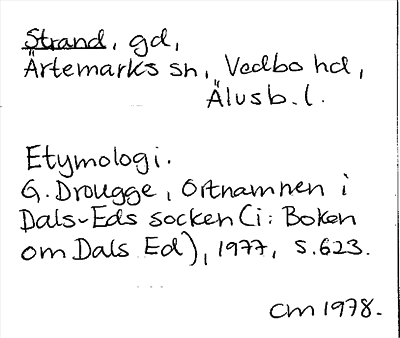 Strand, gd,
Ärtemarks sn, Vedbo hd,
Älvsb. l.
Etymologi.
G. Drougge, Ortnamnen i
Dals-Eds socken (i: Boken
om Dals Ed), 1977, s. 623.
CM 1978.